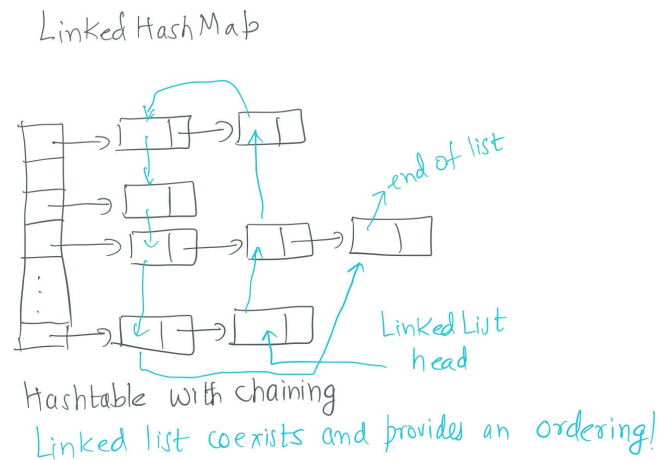 Linked HashMap
end of list
Linked List
head
Hashtable with chaining
Linked list coexists and provides an ordering!